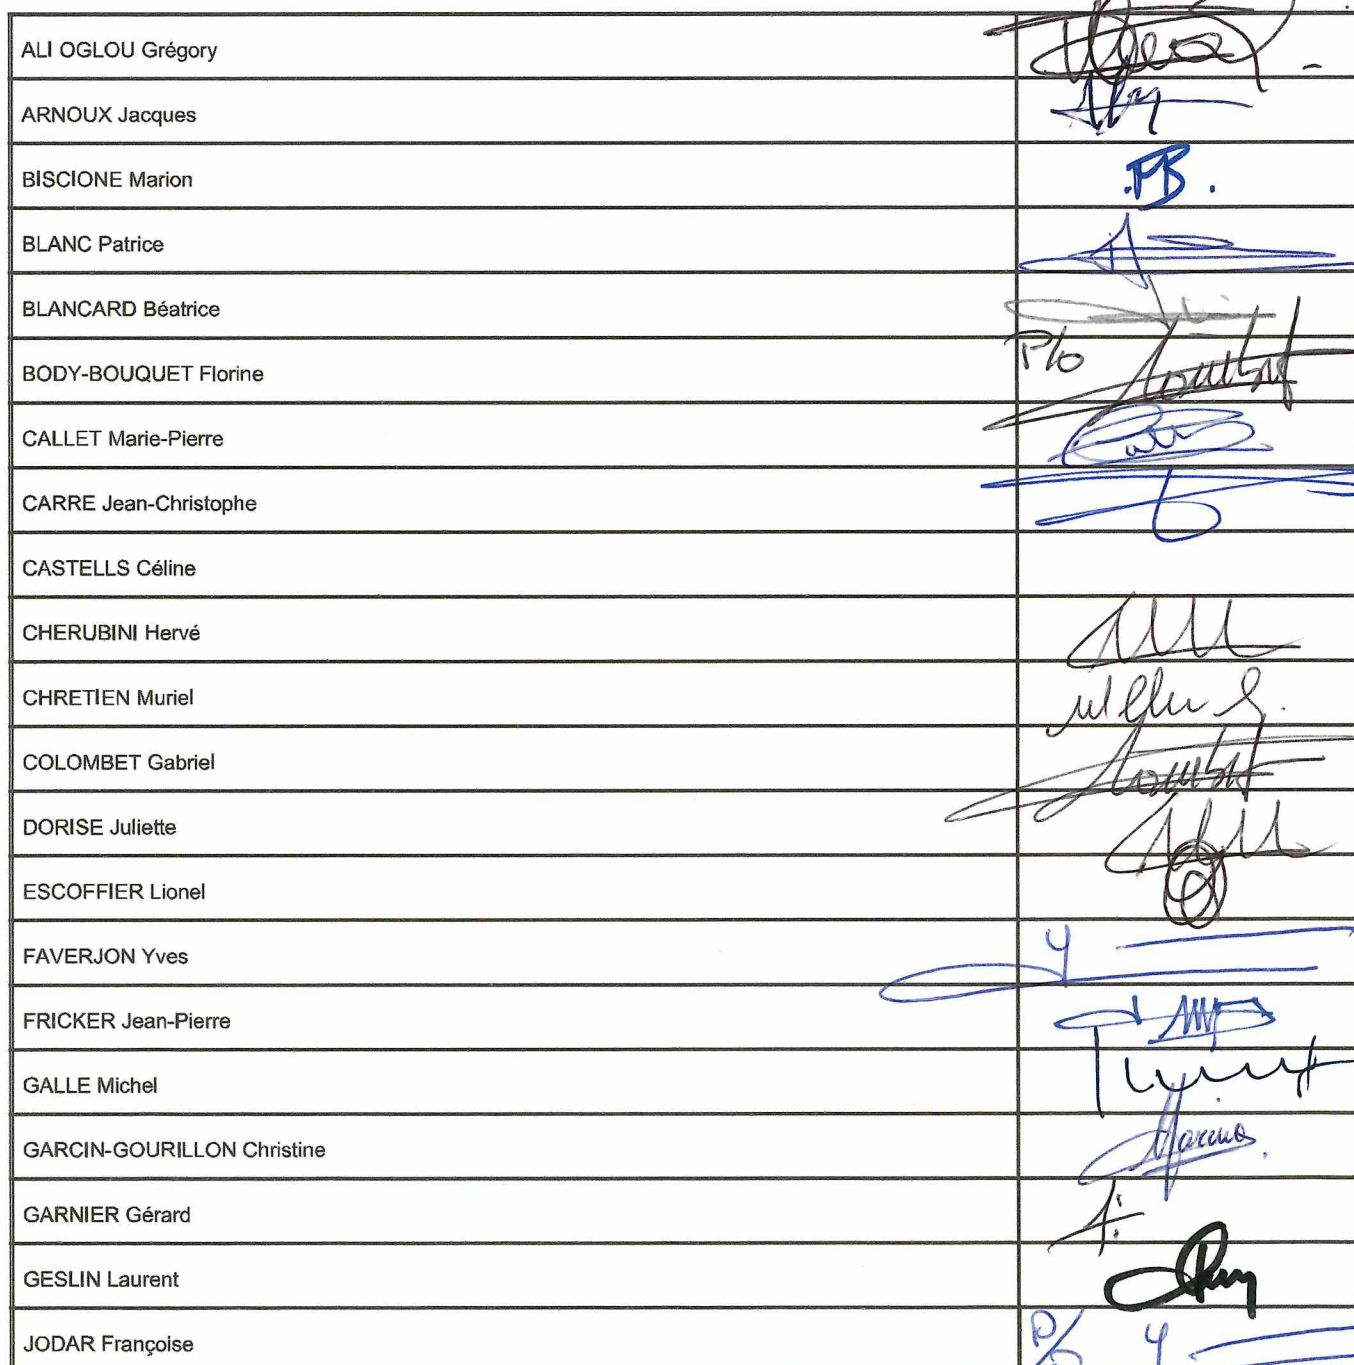 ALI OGLOU Grégory
ARNOUX Jacques
BISCIONE Marion
FB.
BLANC Patrice
BLANCARD Béatrice
BODY-BOUQUET Florine
P/o
CALLET Marie-Pierre
CARRE Jean-Christophe
CASTELLS Céline
CHERUBINI Hervé
CHRETIEN Muriel
COLOMBET Gabriel
DORISE Juliette
ESCOFFIER Lionel
FAVERJON Yves
FRICKER Jean-Pierre
GALLE Michel
GARCIN-GOURILLON Christine
GARNIER Gérard
GESLIN Laurent
JODAR Françoise
P/o